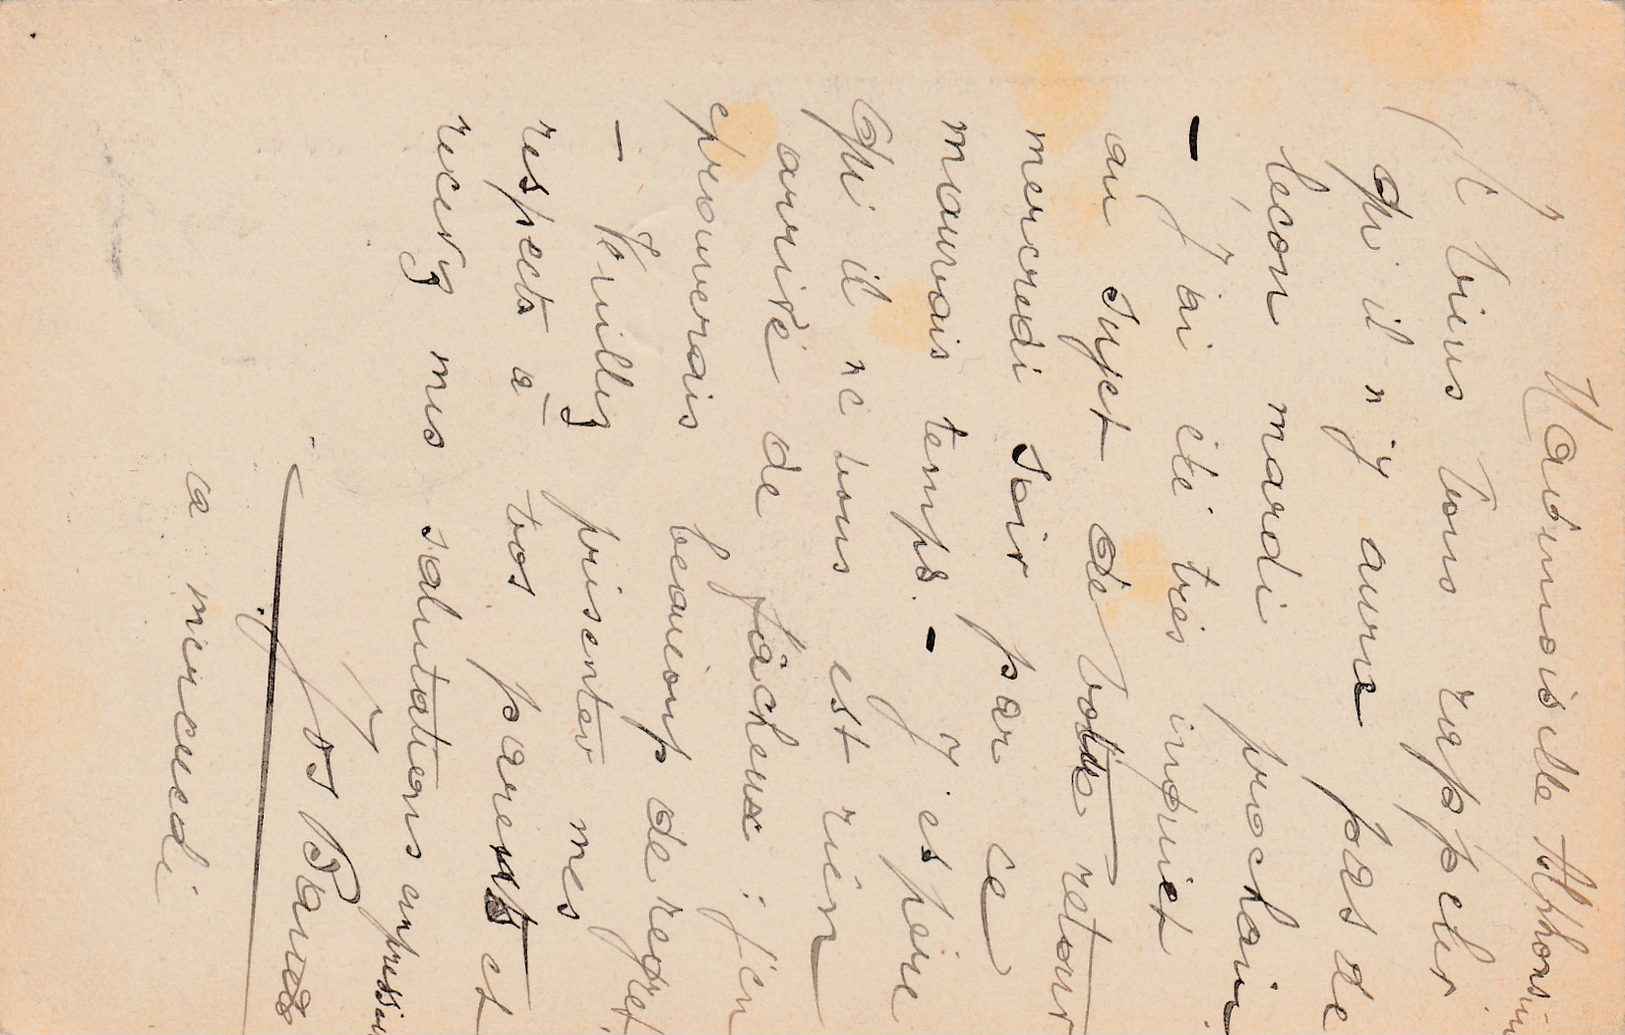 Mademoiselle Alphonsine
Je viens vous rappeler
qu'il n'y aura pas de
leçon mardi prochain.
— J'ai été très inquiet
au sujet de votre retour
mercredi soir par ce
mauvais temps. — J'espère
qu'il ne vous est rien
arrivé de fâcheux ; j'en
éprouverais beaucoup de regret.
— Veuillez présenter mes
respects à vos parents et
recevez mes salutations empressées
Jos
a mercredi